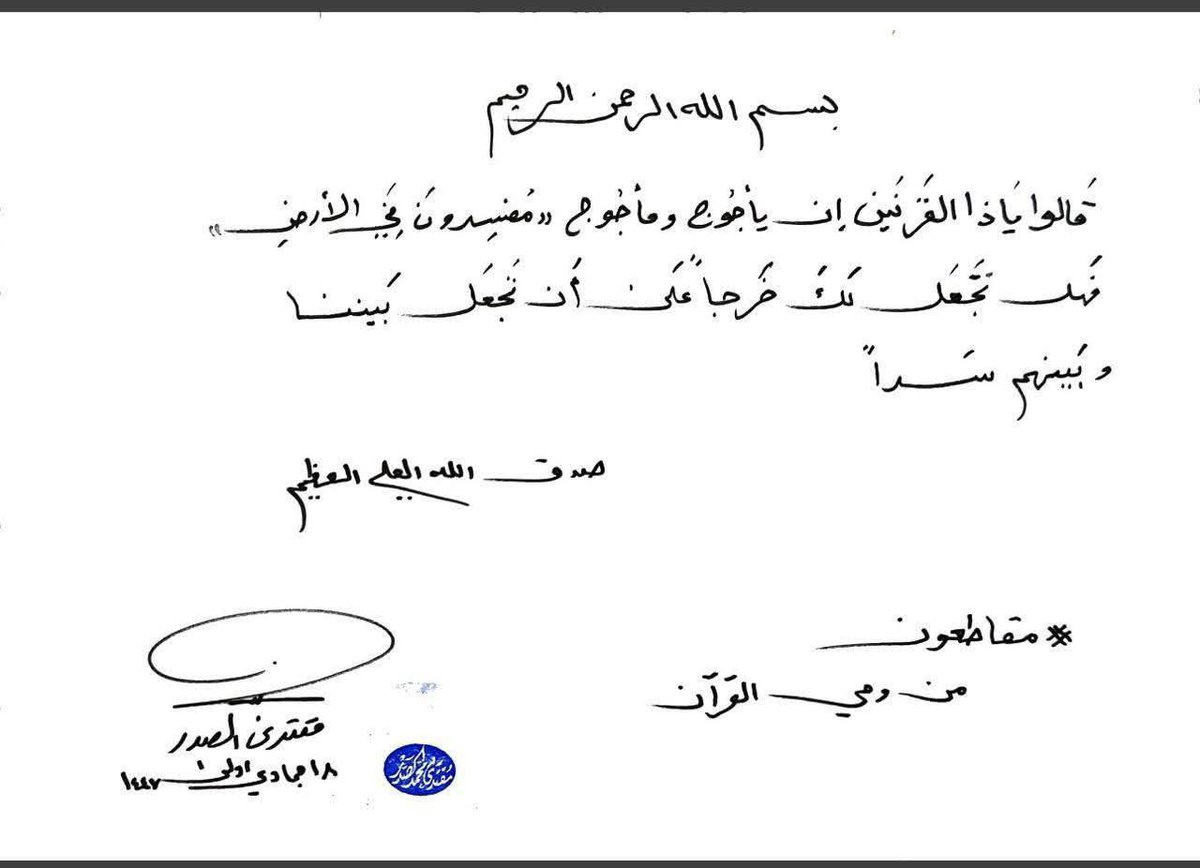 بسم الله الرحمن الرحيم
قَالوا يَاذا القَرنَين إن يأجُوج ومأجُوج «مُفسِدونَ فِي الأرضِ»
فَهل نَجعَل لَكَ خَرجاً عَلى أَن تَجعَل بَيننا
وبَينهم سَداً
صدق الله العلي العظيم
* مقاطعون
من وحي القرآن
مقتدى الصدر
١٨ جمادي اولى ١٤٤٧